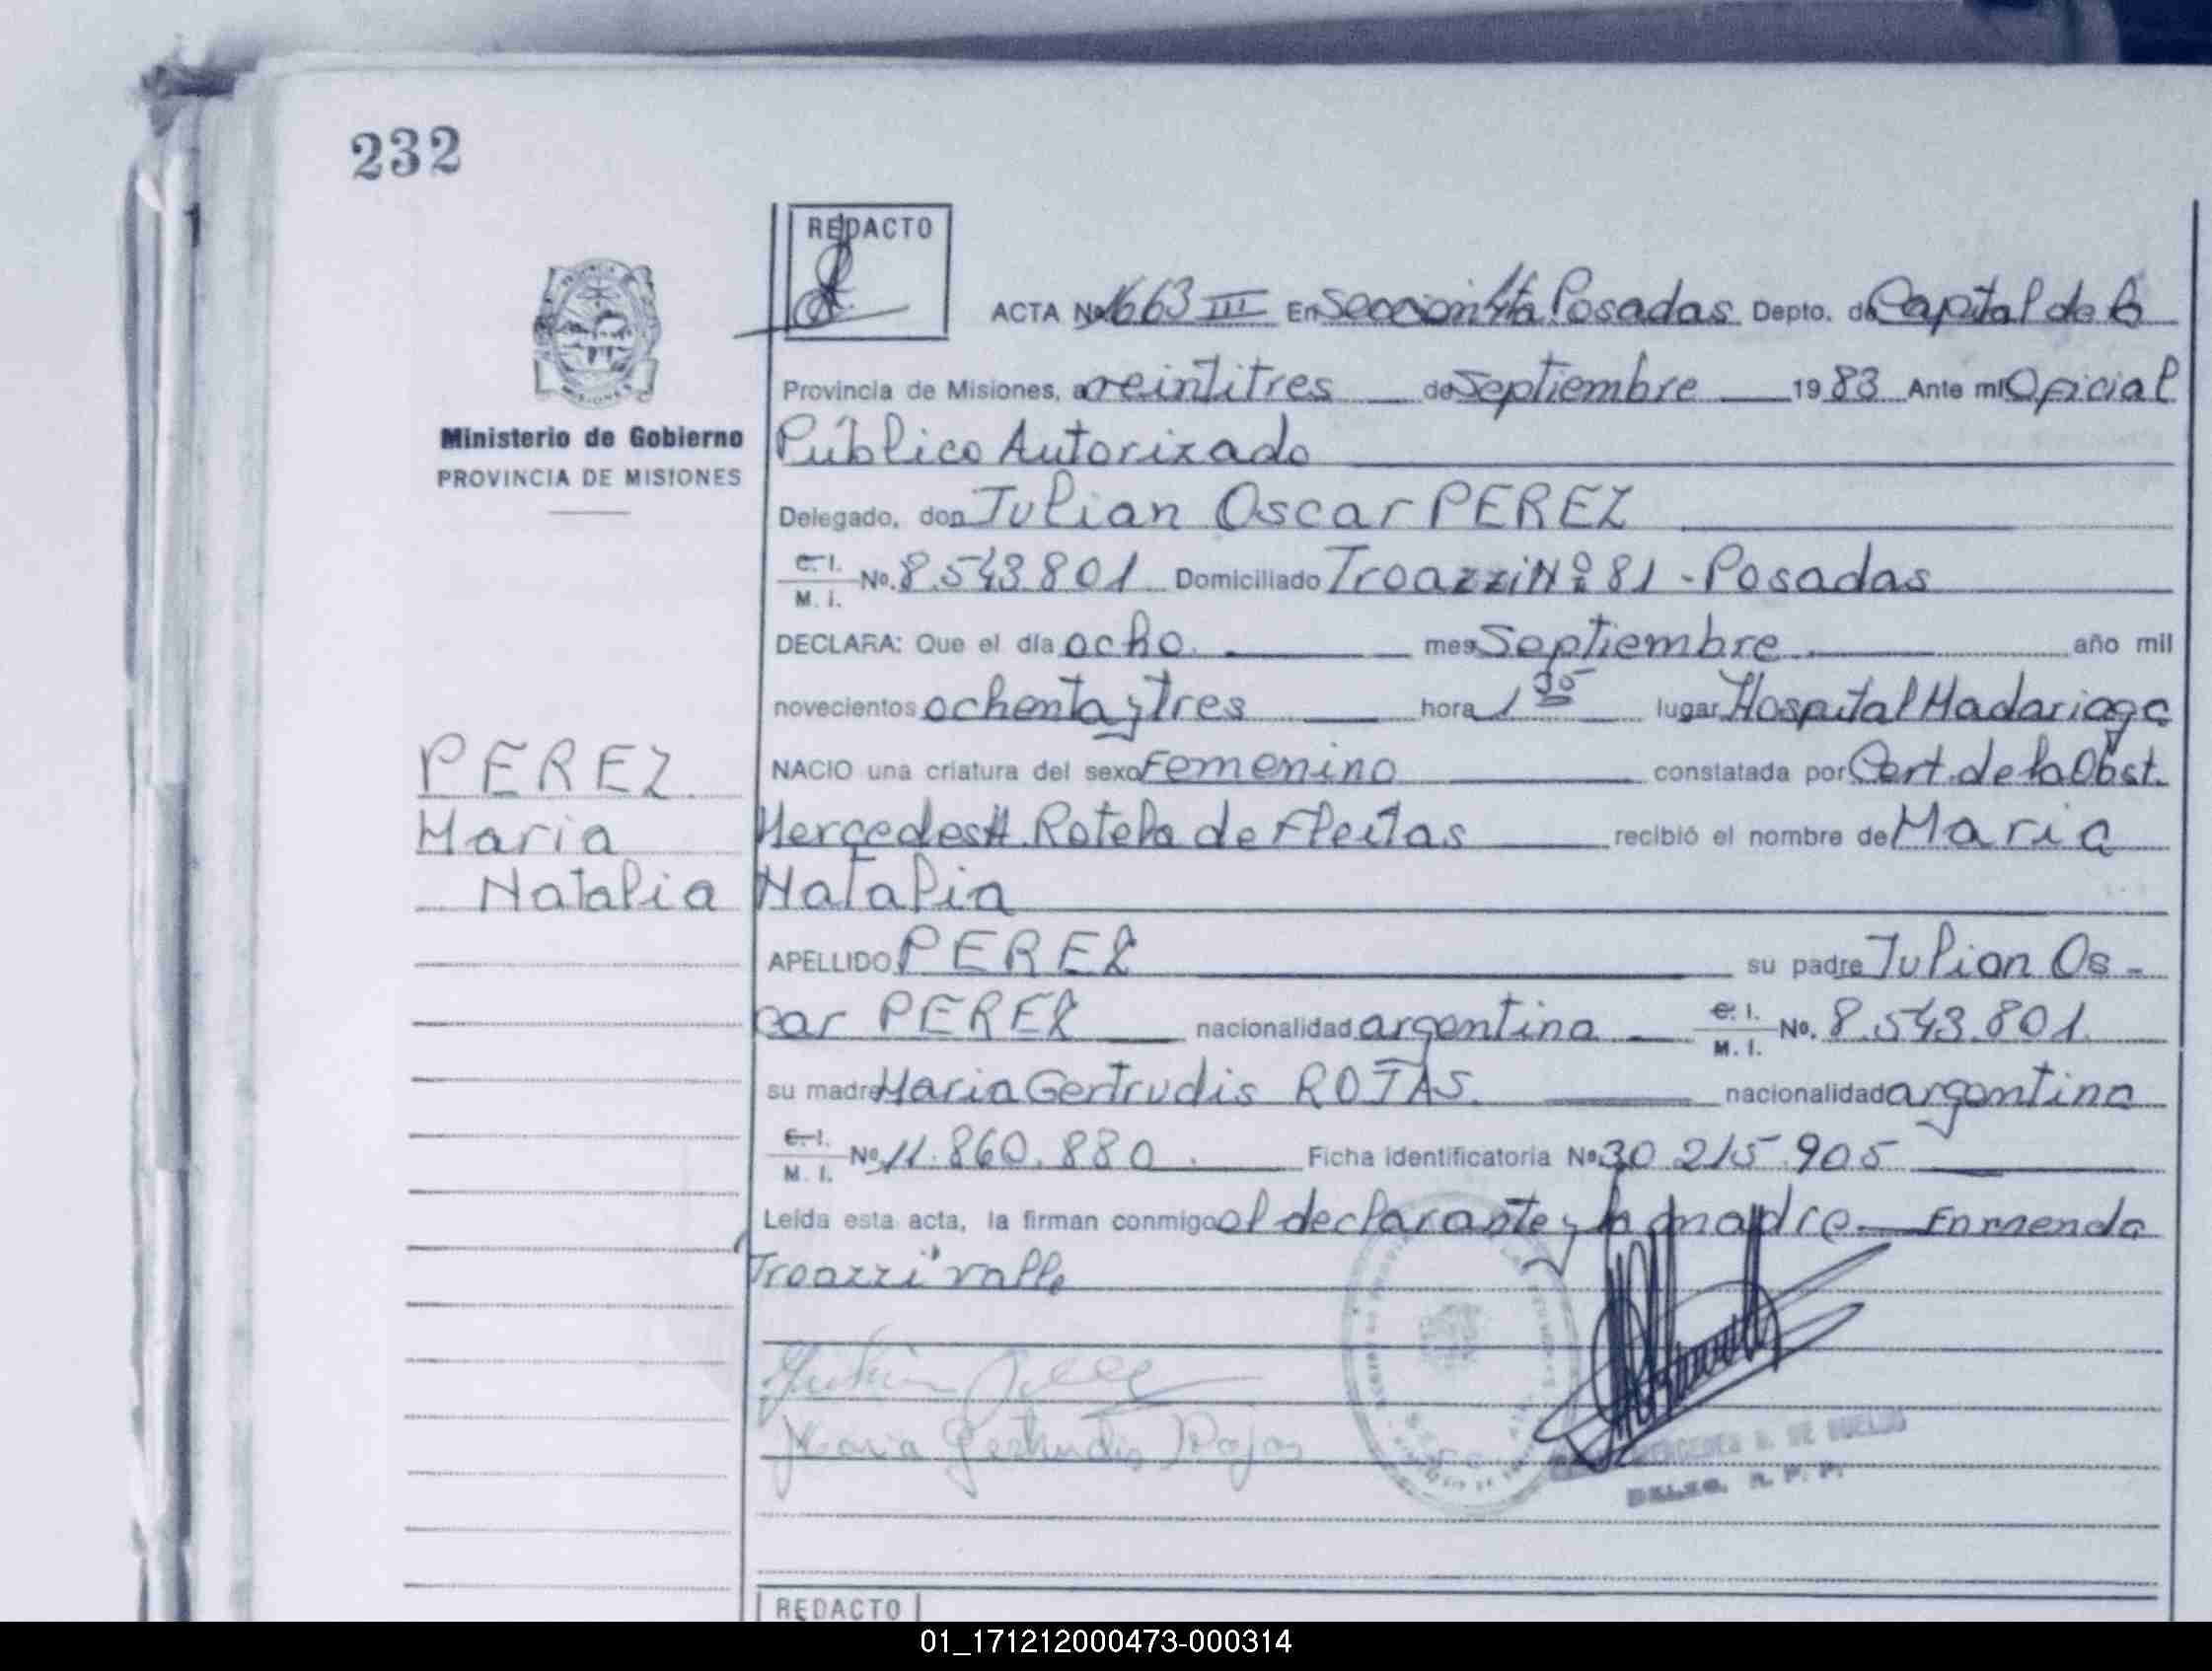 232
REDACTO
ACTA No 1663 III En Seccion 4ta Posadas Depto. de Capital de la
Provincia de Misiones, a veintitres de Septiembre 1983 Ante mi Oficial
Ministerio de Gobierno
PROVINCIA DE MISIONES
Público Autorizado
Delegado, don Julian Oscar PEREZ
C. I. M. I. No. 8.543.801 Domiciliado Troazzi Nº 81 - Posadas
DECLARA: Que el día ocho mes Septiembre año mil
novecientos ochenta y tres hora 1 35 lugar Hospital Madariaga
NACIO una criatura del sexo Femenino constatada por Cert. de la Obst.
Mercedes H. Rotela de Fleitas recibió el nombre de Maria
Natalia
PEREZ
Maria
Natalia
APELLIDO PEREZ su padre Julian Os-
car PEREZ nacionalidad argentina C. I. M. I. No. 8.543.801
su madre Maria Gertrudis ROJAS. nacionalidad argentina
C. I. M. I. No 11.860.880. Ficha identificatoria No 30.215.905
Leída esta acta, la firman conmigo el declarante y la madre. Enmenda
Troazzi valle
Maria Gertrudis Rojas
MERCEDES DE SUELDO
DELEG. R. P. P.
REDACTO
01_171212000473-000314